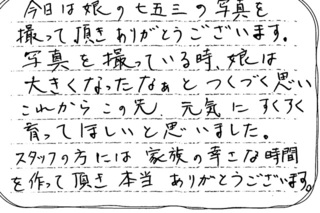 今日は娘の七五三の写真を
撮って頂きありがとうございます。
写真を撮っている時、娘は
大きくなったなぁとつくづく思い
これからこの先、元気にすくすく
育ってほしいと思いました。
スタッフの方には家族の幸せな時間
を作って頂き本当ありがとうございます。